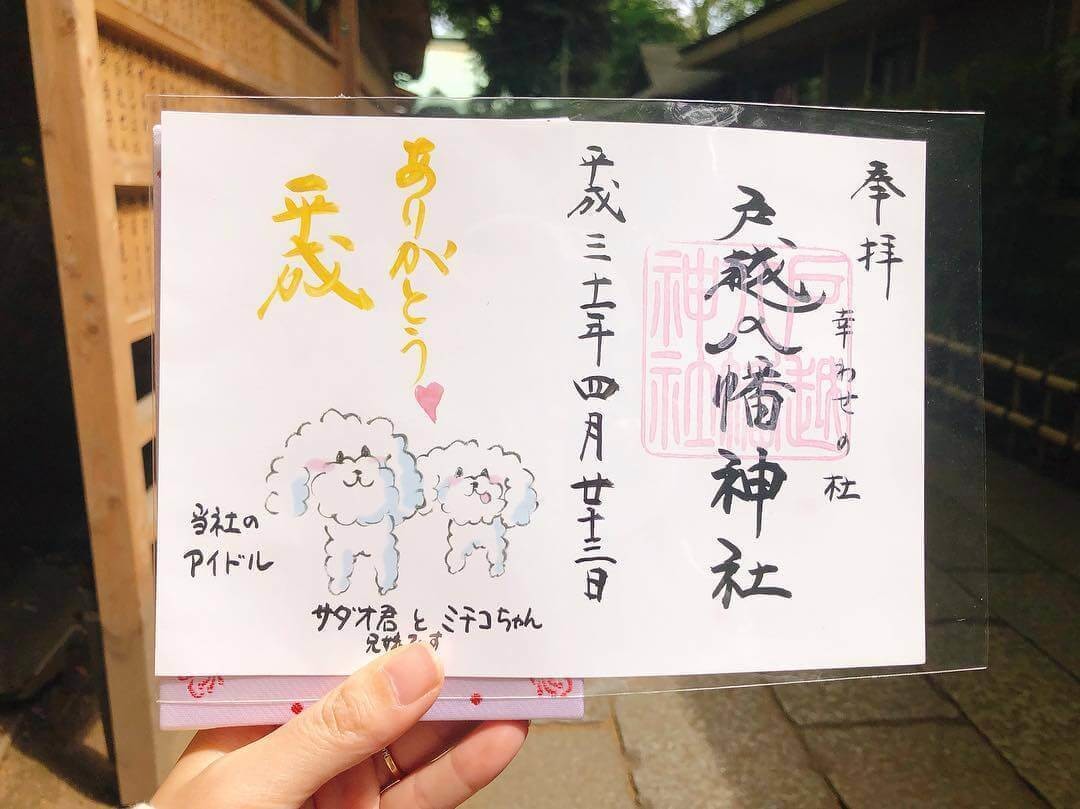 奉拝
幸わせの杜
戸越八幡神社
戸越八幡神社
平成三十一年四月廿十三日
ありがとう
平成
当社の
アイドル
サダオ君とミチコちゃん
兄妹です